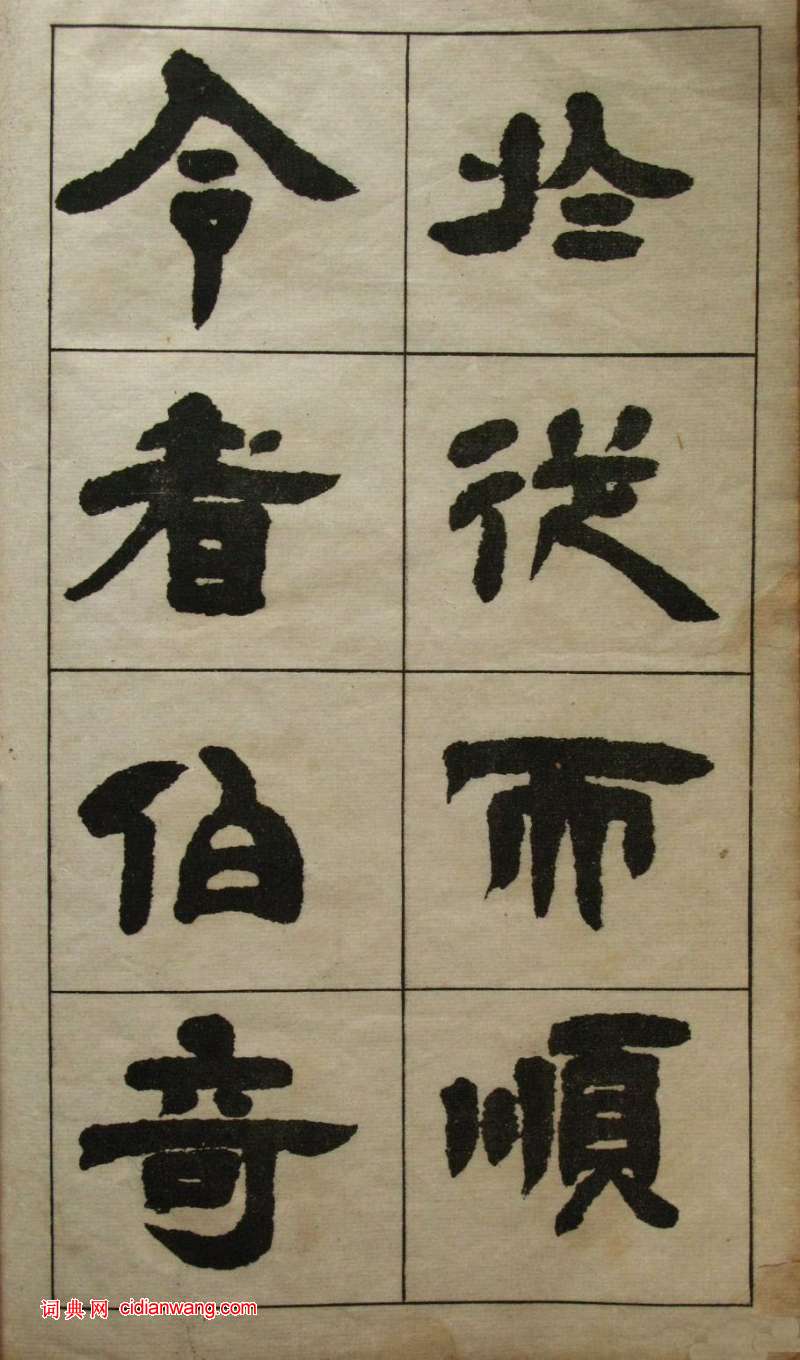 於從而順
令者伯奇
词典网 cidianwang.com